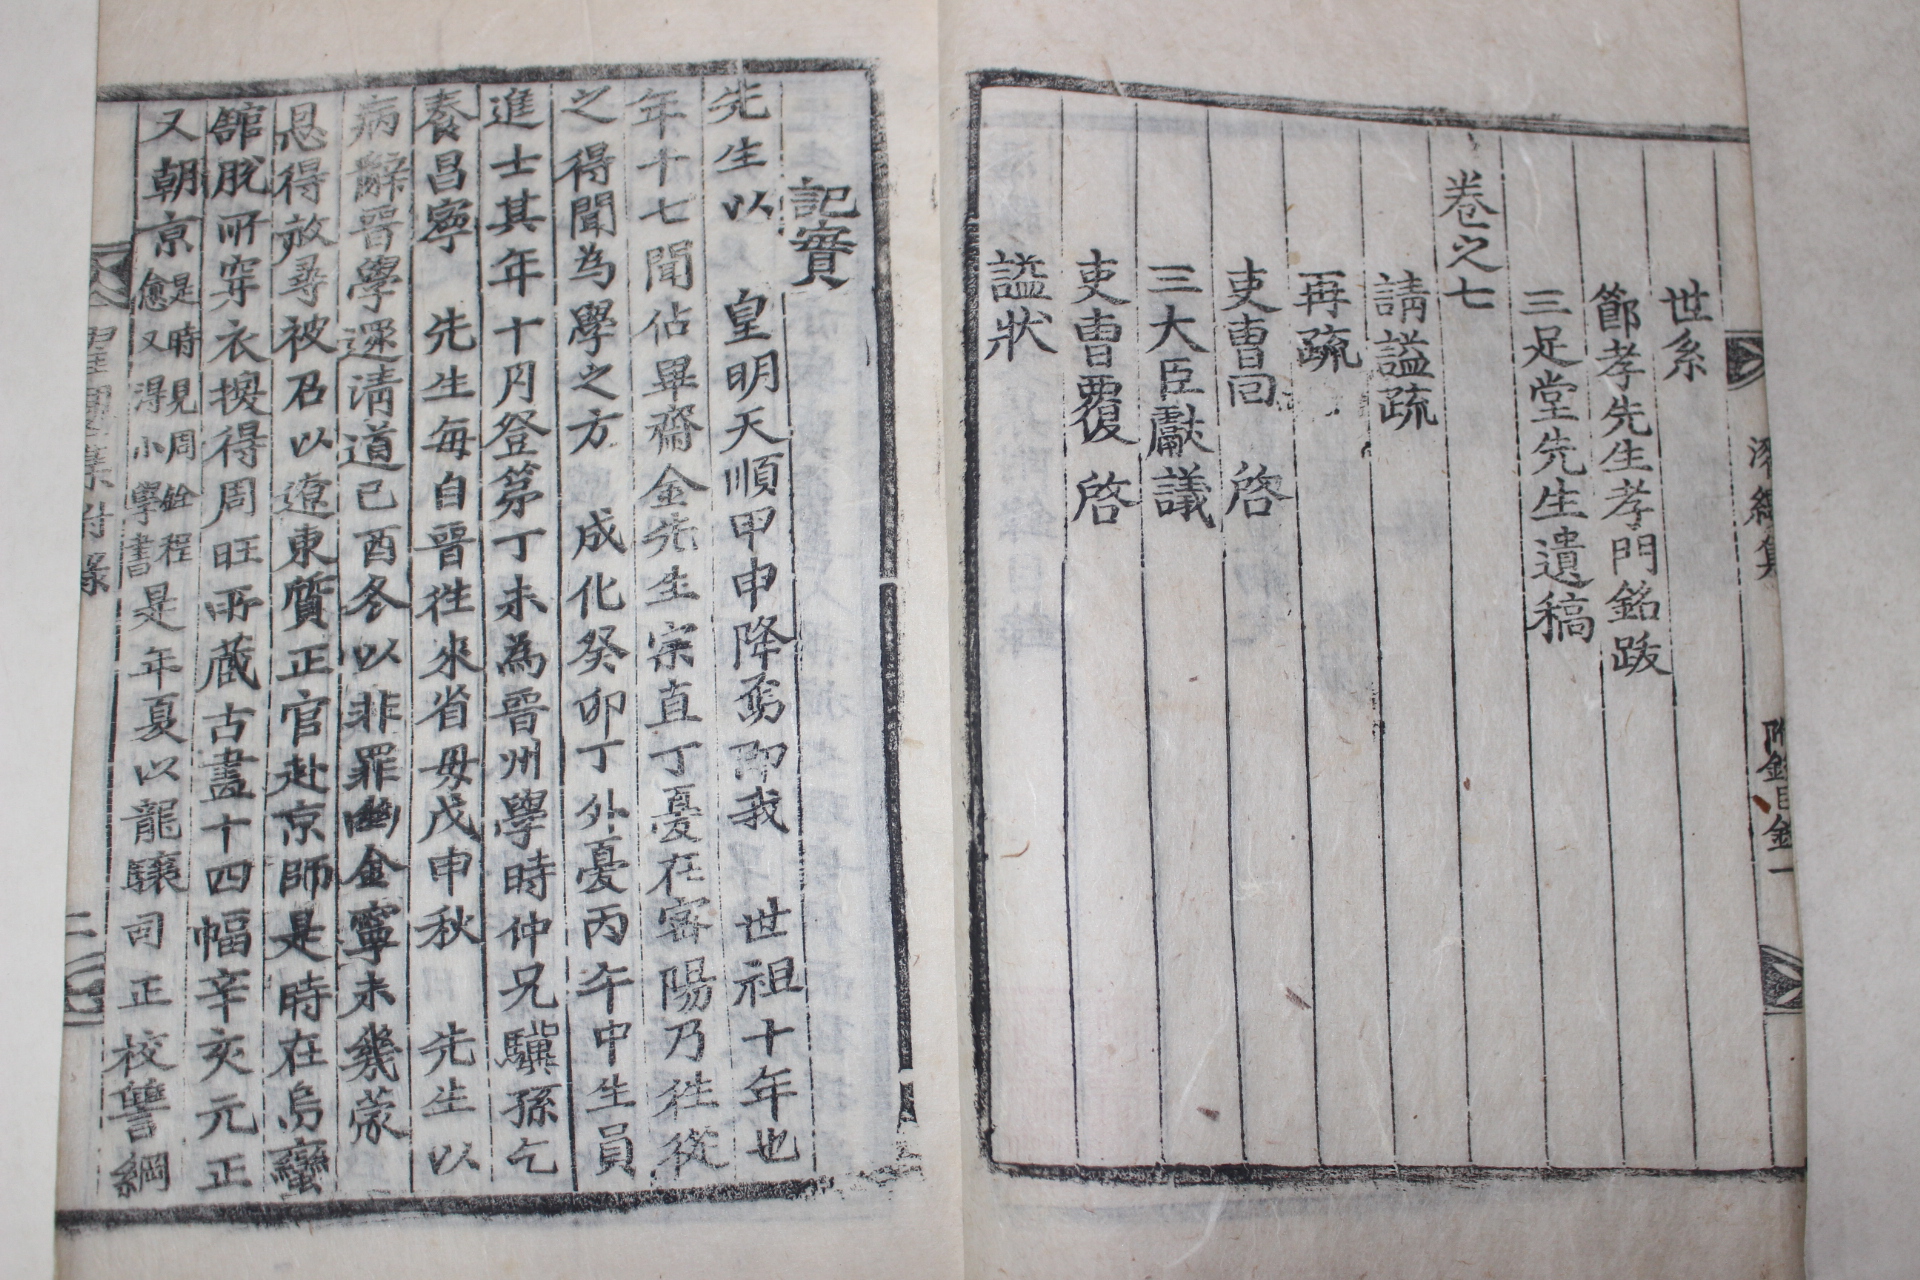 濯纓集 附錄目錄 一
世系
節孝先生孝門銘跋
三足堂先生遺稿
卷之七
請諡疏
再疏
吏曹回 啓
三大臣獻議
吏曹覆 啓
諡狀
記實
先生以 皇明天順甲申降 即我 世祖十年也
年十七聞佔畢齋金先生宗直丁憂在密陽乃徃從
之得聞為學之方 成化癸卯丁外憂丙午中生員
進士其年十月登第丁未為晋州學時仲兄驥孫乞
養昌寧 先生每自晋徃來省母戊申秋 先生以
病辭晋學還淸道己酉冬以非罪幽金寧未幾蒙
恩得放尋被召以遼東質正官赴京師是時在烏蠻
舘脫所穿衣換得周旺所藏古畫十四幅辛亥元正
又朝京是時見周銓程愈又得小學書是年夏以龍驤司正校讐綱
附錄 二